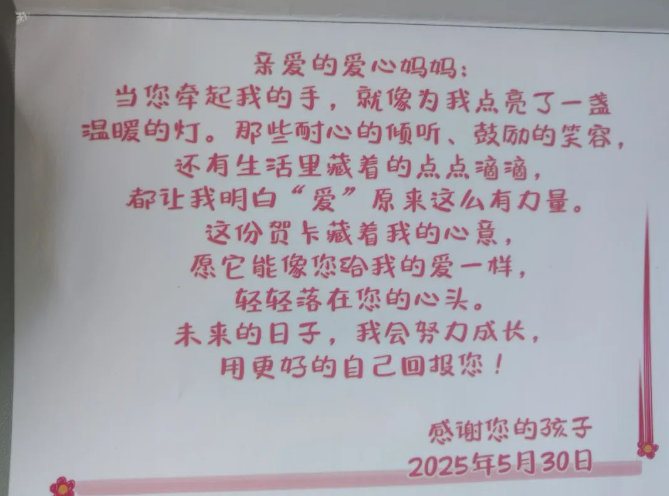 亲爱的爱心妈妈:
当您牵起我的手，就像为我点亮了一盏
温暖的灯。那些耐心的倾听、鼓励的笑容，
还有生活里藏着的点点滴滴，
都让我明白“爱”原来这么有力量。
这份贺卡藏着我的心意，
愿它能像您给我的爱一样，
轻轻落在您的心头。
未来的日子，我会努力成长，
用更好的自己回报您！
感谢您的孩子
2025年5月30日